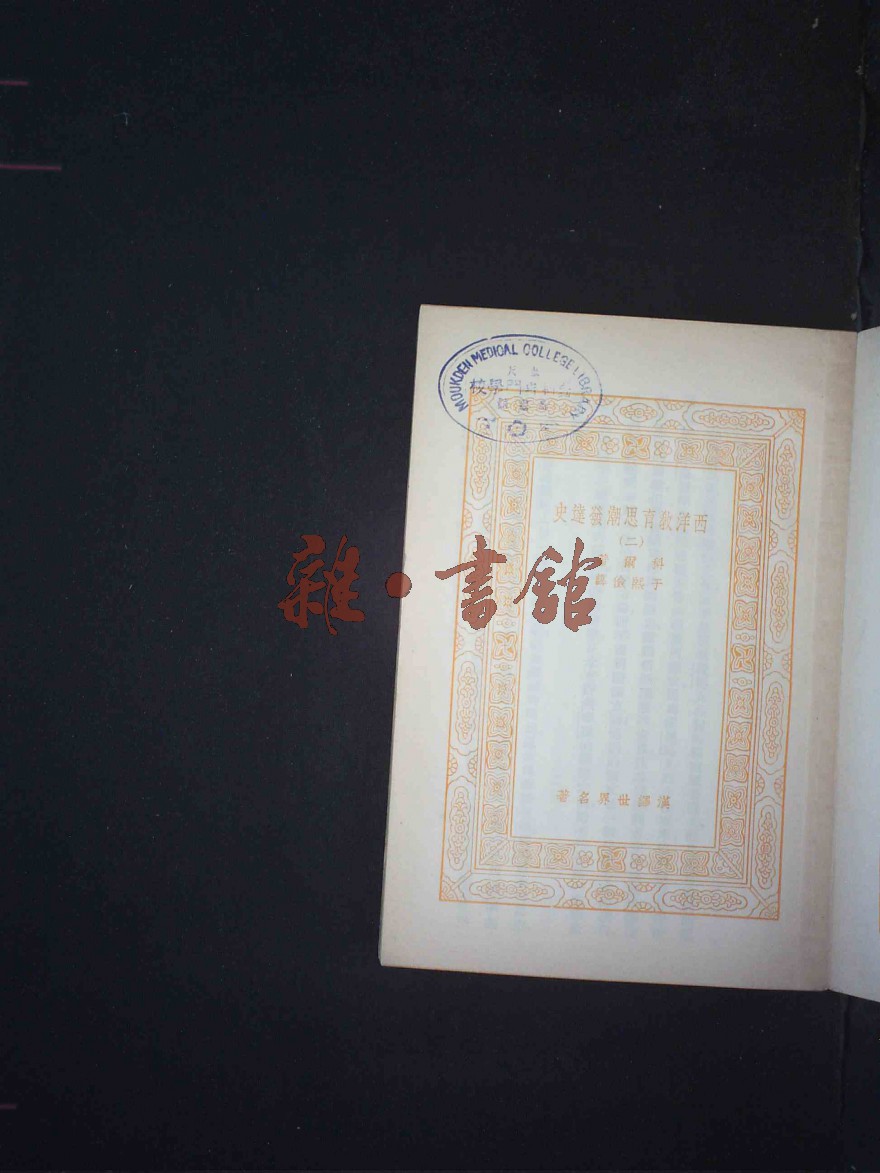 MOUKDEN MEDICAL COLLEGE LIBRARY
西洋教育思潮發達史
(二)
科爾著
于熙儉譯
雜·書館
漢譯世界名著